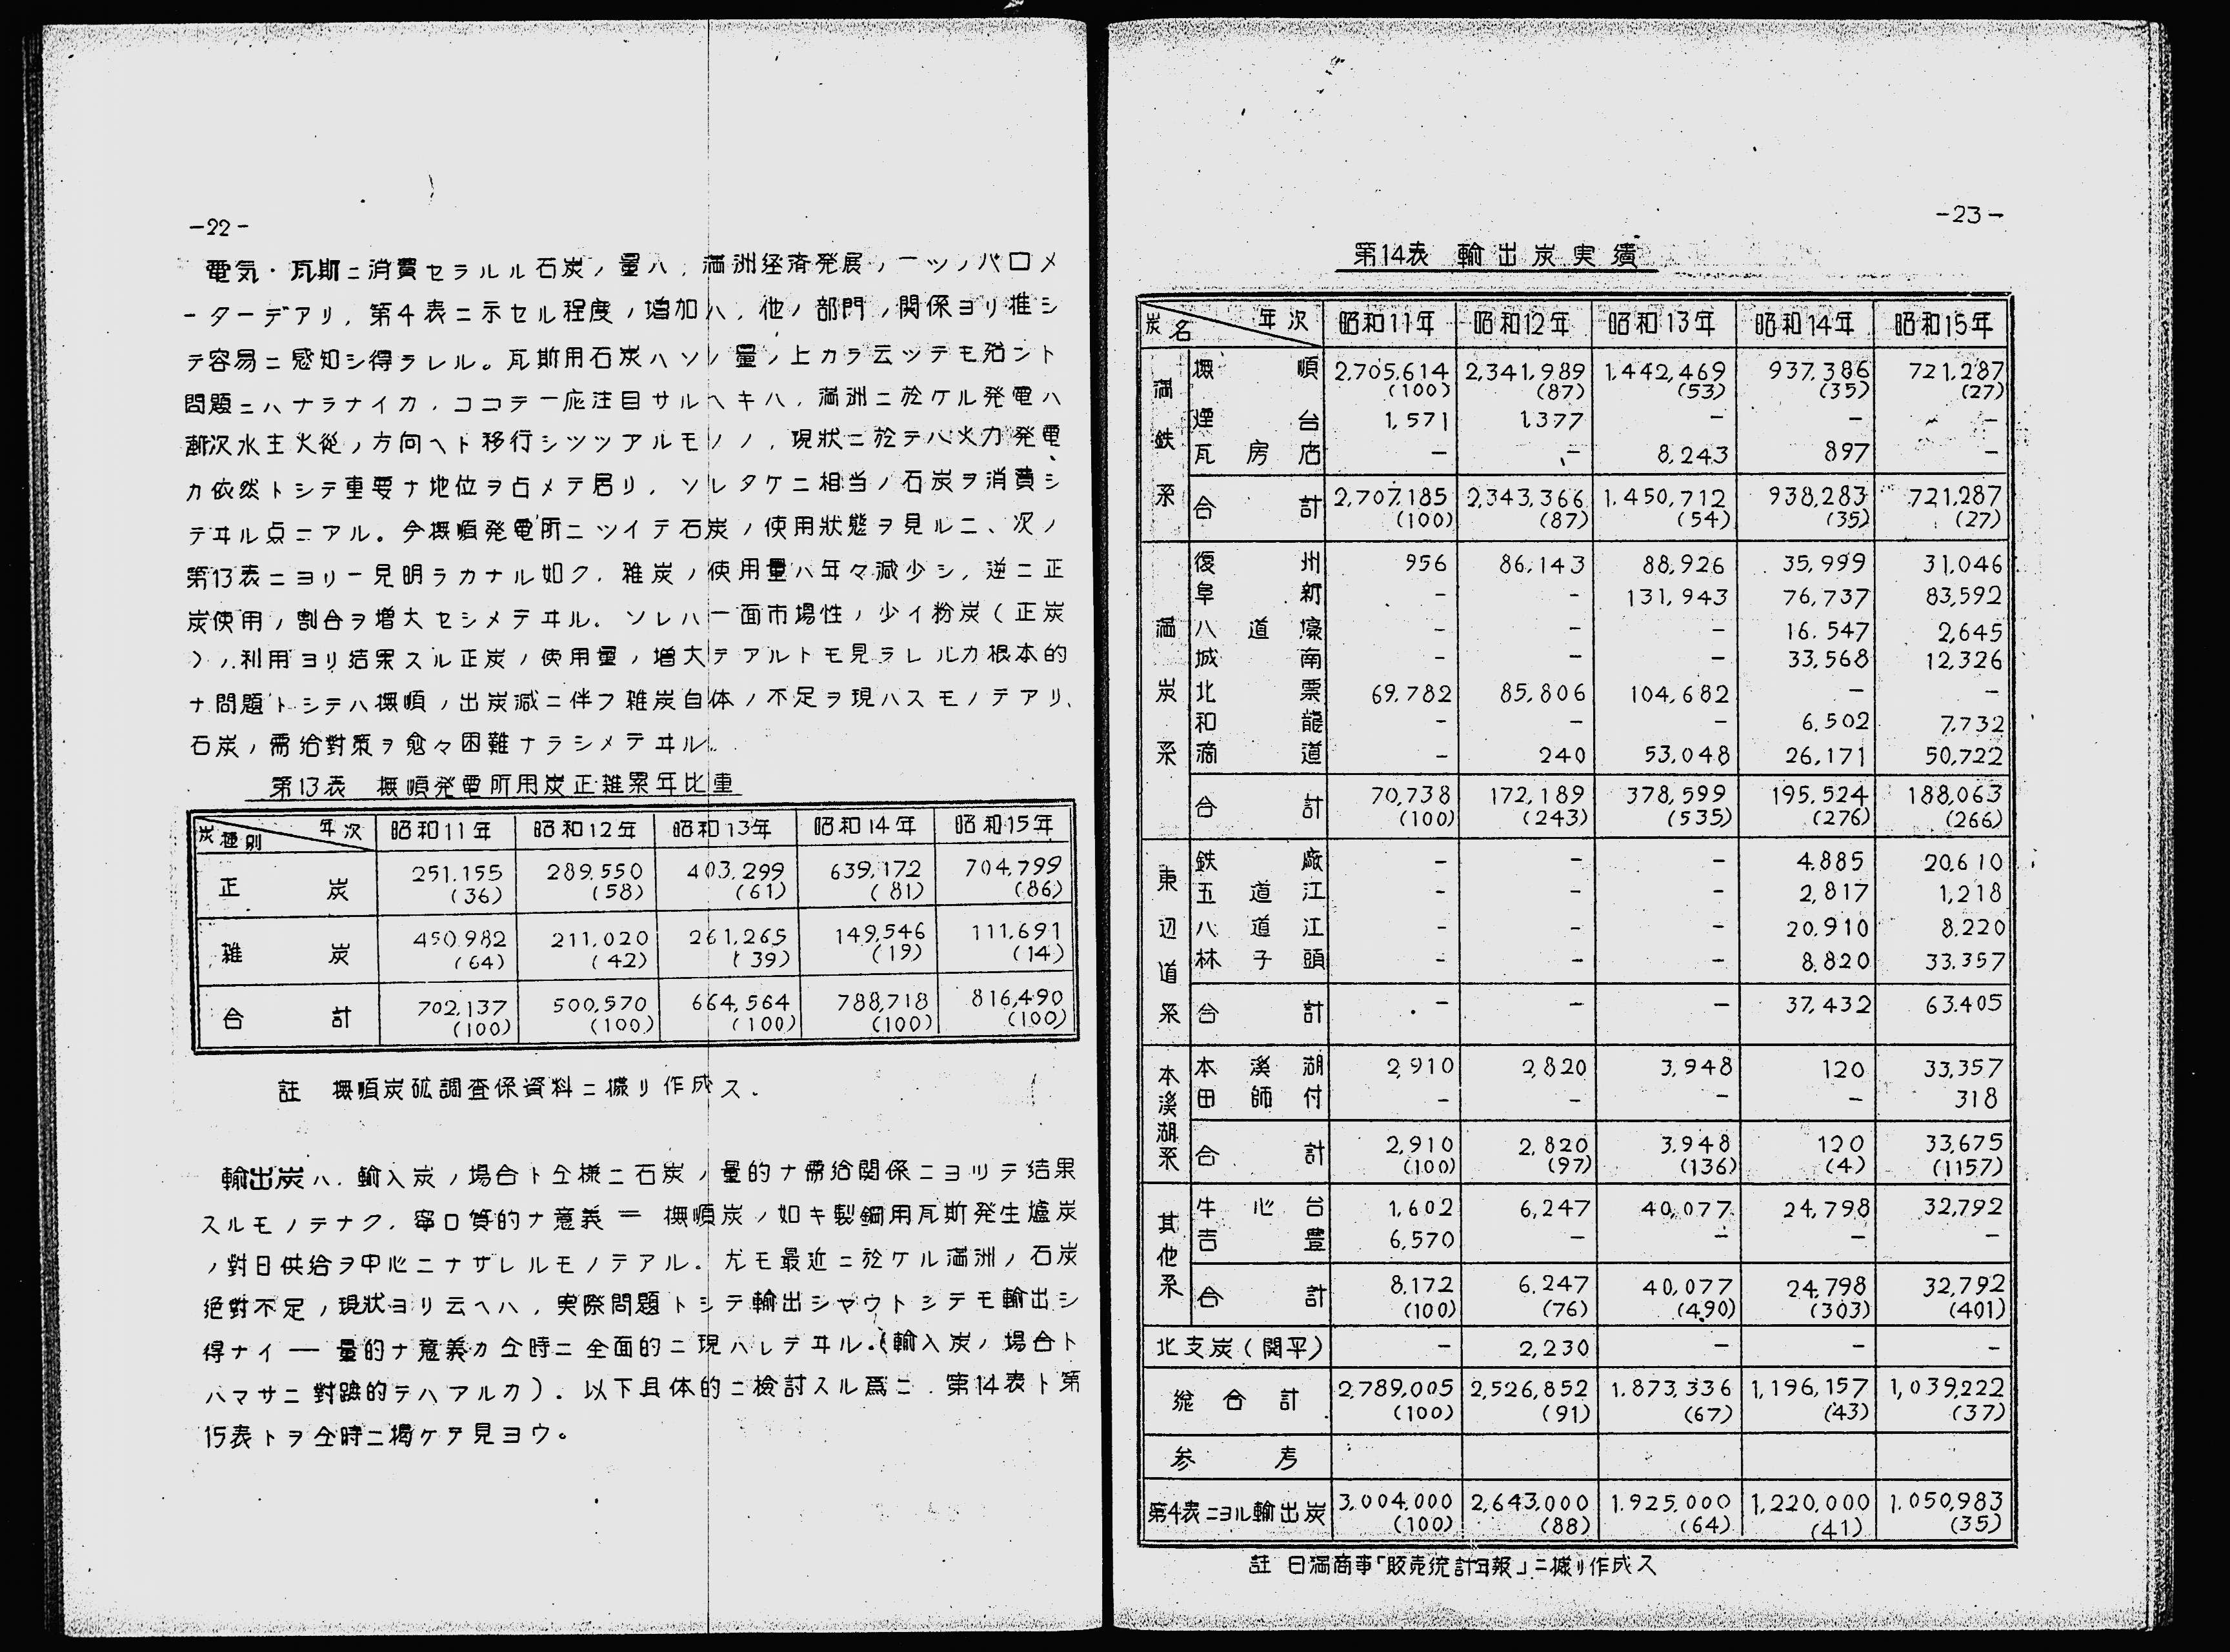 -22-
電気・瓦斯ニ消費セラルル石炭ノ量ハ，満洲経済発展ノ一ツノバロメ
ーターデアリ，第4表ニ示セル程度ノ増加ハ，他ノ部門ノ関係ヨリ推シ
テ容易ニ感知シ得ラレル。瓦斯用石炭ハソノ量ノ上カラ云ツテモ殆ント
問題ニハナラナイカ，ココテ一応注目サルヘキハ，満洲ニ於ケル発電ハ
漸次水主火従ノ方向ヘト移行シツツアルモノノ，現状ニ於テハ火力発電
カ依然トシテ重要ナ地位ヲ占メテ居リ，ソレタケニ相当ノ石炭ヲ消費シ
テヰル点ニアル。今撫順発電所ニツイテ石炭ノ使用状態ヲ見ルニ、次ノ
第13表ニヨリ一見明ラカナル如ク，雑炭ノ使用量ハ年々減少シ，逆ニ正
炭使用ノ割合ヲ増大セシメテヰル．ソレハ一面市場性ノ少イ粉炭（正炭
）ノ利用ヨリ結果スル正炭ノ使用量ノ増大テアルトモ見ラレルカ根本的
ナ問題トシテハ撫順ノ出炭減ニ伴フ雑炭自体ノ不足ヲ現ハスモノテアリ、
石炭ノ需給対策ヲ愈々困難ナラシメテヰル。
第13表 撫順発電所用炭正雑累年比重
炭種別 年次 昭和11年 昭和12年 昭和13年 昭和14年 昭和15年
正炭 251,155 289,550 403,299 639,172 704,799
(36) (58) (61) (81) (86)
雑炭 450,982 211,020 261,265 149,546 111,691
(64) (42) (39) (19) (14)
合計 702,137 500,570 664,564 788,718 816,490
(100) (100) (100) (100) (100)
註 撫順炭砿調査係資料ニ拠リ作成ス．
輸出炭ハ，輸入炭ノ場合ト仝様ニ石炭ノ量的ナ需給関係ニヨリテ結果
スルモノテナク，寧口質的ナ意義＝撫順炭ノ如キ製鋼用瓦斯発生爐炭
ノ對日供給ヲ中心ニナサレルモノテアル．尤モ最近ニ於ケル満洲ノ石炭
絶對不足ノ現状ヨリ云ヘハ，実際問題トシテ輸出シヤウトシテモ輸出シ
得ナイ―量的ナ意義カ仝時ニ全面的ニ現ハレテヰル．(輸入炭ノ場合ト
ハマサニ對蹠的テハアルカ）．以下具体的ニ検討スル爲ニ，第14表ト第
15表トヲ仝時ニ掲ケテ見ヨウ。
-23-
第14表 輸出炭実績
炭名 年次 昭和11年 昭和12年 昭和13年 昭和14年 昭和15年
満鉄系
撫順 2,705,614 2,341,989 1,442,469 937,386 721,287
(100) (87) (53) (35) (27)
煙台 1,571 1,377 - - -
瓦房店 - - 8,243 897 -
合計 2,707,185 2,343,366 1,450,712 938,283 721,287
(100) (87) (54) (35) (27)
満炭系
復州 956 86,143 88,926 35,999 31,046
阜新 - - 131,943 76,737 83,592
八道壕 - - - 16,547 2,645
城南 - - - 33,568 12,326
北票 69,782 85,806 104,682 - -
和龍 - - - 6,502 7,732
滴道 - 240 53,048 26,171 50,722
合計 70,738 172,189 378,599 195,524 188,063
(100) (243) (535) (276) (266)
東辺道系
鉄廠 - - - 4,885 20,610
五道江 - - - 2,817 1,218
八道江 - - - 20,910 8,220
林子頭 - - - 8,820 33,357
合計 - - - 37,432 63,405
本溪湖系
本溪湖 2,910 2,820 3,948 120 33,357
田師付 - - - - 318
合計 2,910 2,820 3,948 120 33,675
(100) (97) (136) (4) (1157)
其他系
牛心台 1,602 6,247 40,077 24,798 32,792
吉豊 6,570 - - - -
合計 8,172 6,247 40,077 24,798 32,792
(100) (76) (490) (303) (401)
北支炭(開平) - 2,230 - - -
総合計 2,789,005 2,526,852 1,873,336 1,196,157 1,039,222
(100) (91) (67) (43) (37)
参考
第4表ニヨル輸出炭 3,004,000 2,643,000 1,925,000 1,220,000 1,050,983
(100) (88) (64) (41) (35)
註 日満商事「販売統計年報」ニ拠リ作成ス